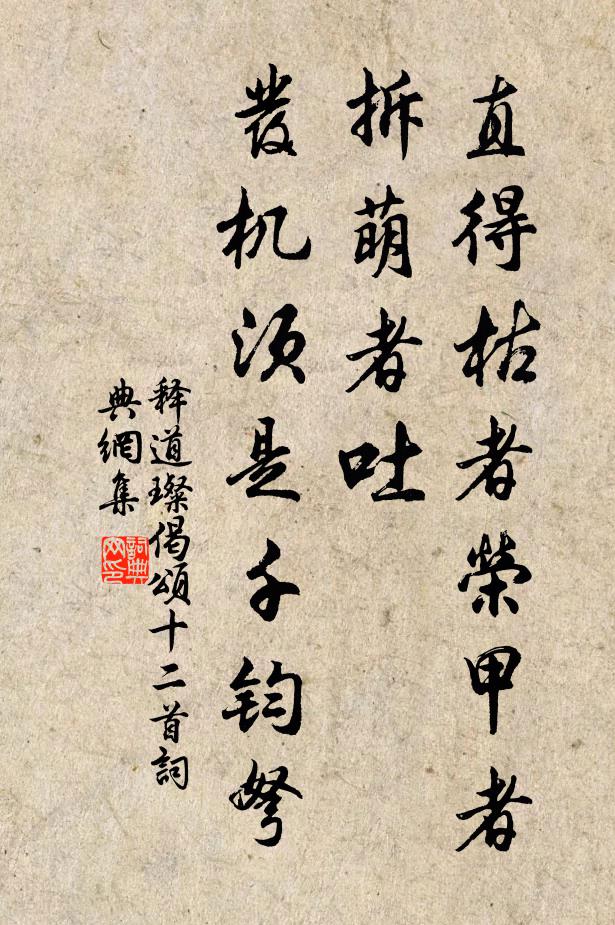 直得枯者榮甲者
拆萌者吐
發机須是千鈞弩
释道璨偈頌十二首詞
典網集
詞典
网印